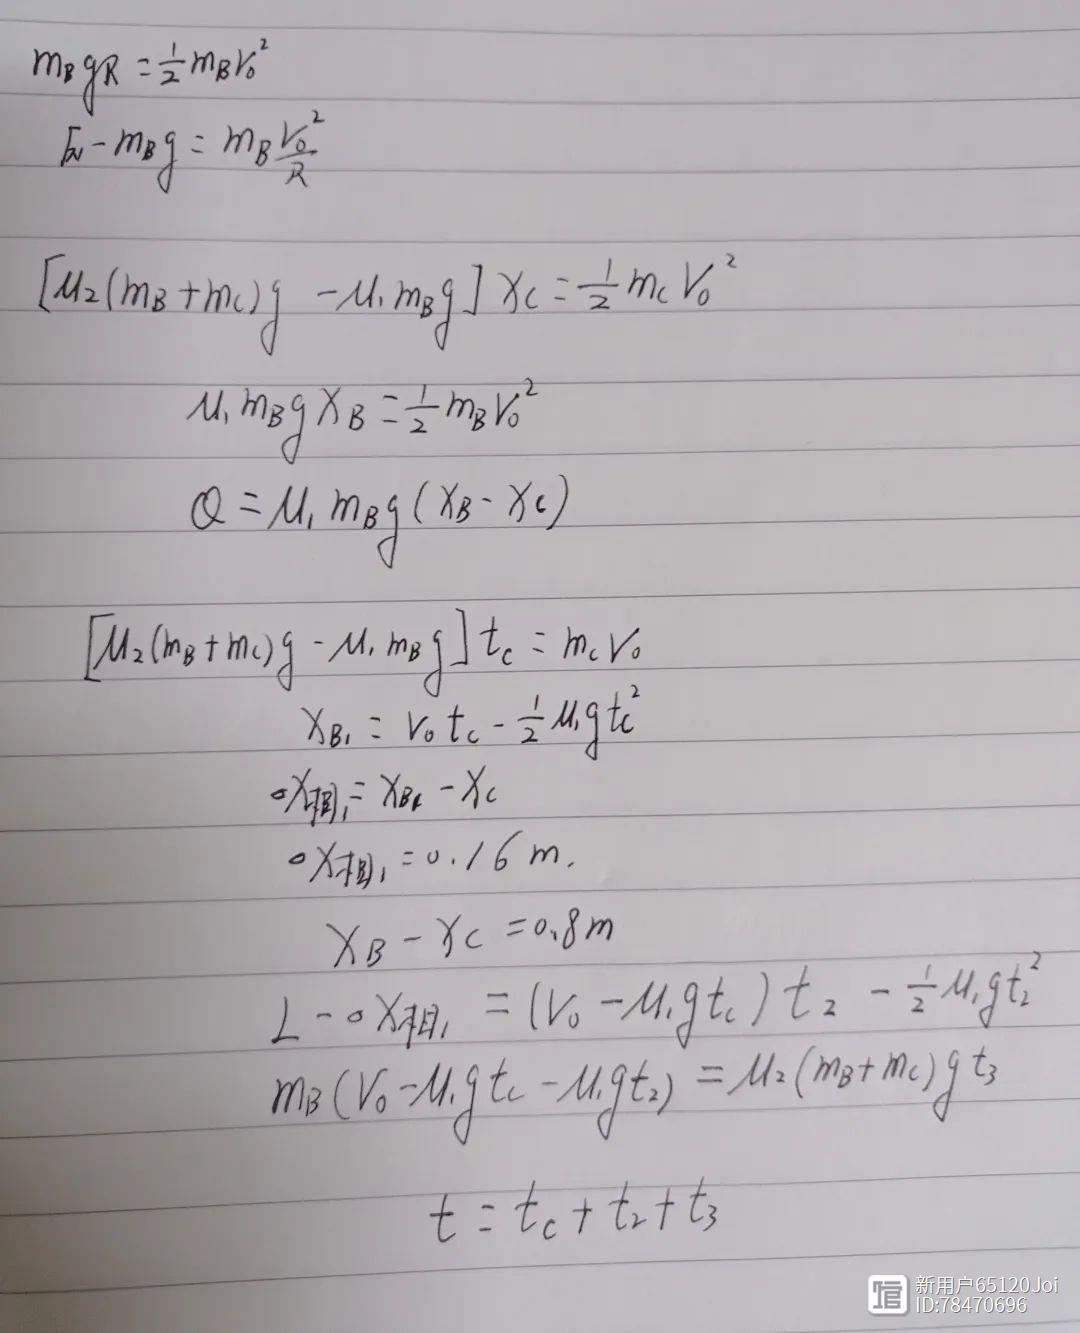 m_B gR = ½ m_B v₀²
F_N - m_B g = m_B v₀²/R
[μ₂(m_B + m_C)g - μ₁m_B g] x_C = ½ m_C v₀²
μ₁ m_B g x_B = ½ m_B v₀²
Q = μ₁ m_B g (x_B - x_C)
[μ₂(m_B + m_C)g - μ₁ m_B g] t_C = m_C v₀
x_B₁ = v₀ t_C - ½ μ₁ g t_C²
△x相₁ = x_B₁ - x_C
△x相₁ = 0.16 m.
x_B - x_C = 0.8m
L - △x相₁ = (v₀ - μ₁g t_C) t₂ - ½ μ₁ g t₂²
m_B (v₀ - μ₁g t_C - μ₁g t₂) = μ₂(m_B + m_C) g t₃
t = t_C + t₂ + t₃
新用户65120Joi
ID:78470696